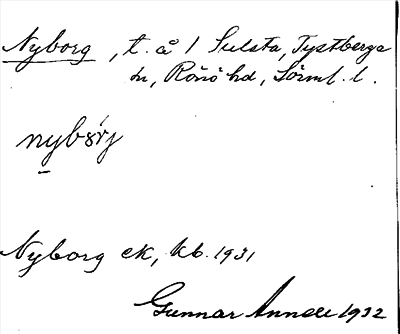 Nyborg, t. å 1 Sulsta, Tystberga
sn, Rönö hd, Sörml. l.
nybörj
Nyborg ek, kb. 1931
Gunnar Annell 1932